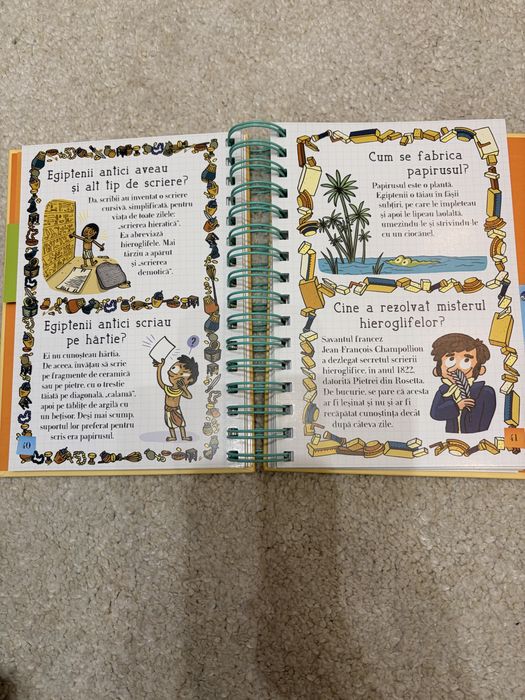 Egiptenii antici aveau
și alt tip de scriere?
Da, scribii au inventat o scriere
cursivă, simplificată, pentru
viața de toate zilele:
„scrierea hieratică”.
Ea abreviază
hieroglifele. Mai
târziu a apărut
și „scrierea
demotică”.
Egiptenii antici scriau
pe hârtie?
Ei nu cunoșteau hârtia.
De aceea, învățau să scrie
pe fragmente de ceramică
sau pe pietre, cu o trestie
tăiată pe diagonală, „calamă”,
apoi pe tăblițe de argilă cu
un bețișor. Deși mai scump,
suportul lor preferat pentru
scris era papirusul.
40
Cum se fabrica
papirusul?
Papirusul este o plantă.
Egiptenii o tăiau în fâșii
subțiri, pe care le împleteau
și apoi le lipeau laolaltă,
umezindu-le și strivindu-le
cu un ciocănel.
Cine a rezolvat misterul
hieroglifelor?
Savantul francez
Jean-François Champollion
a dezlegat secretul scrierii
hieroglifice, în anul 1822,
datorită Pietrei din Rosetta.
De bucurie, se pare că acesta
ar fi leșinat și nu și-ar fi
recăpătat cunoștința decât
după câteva zile.
41